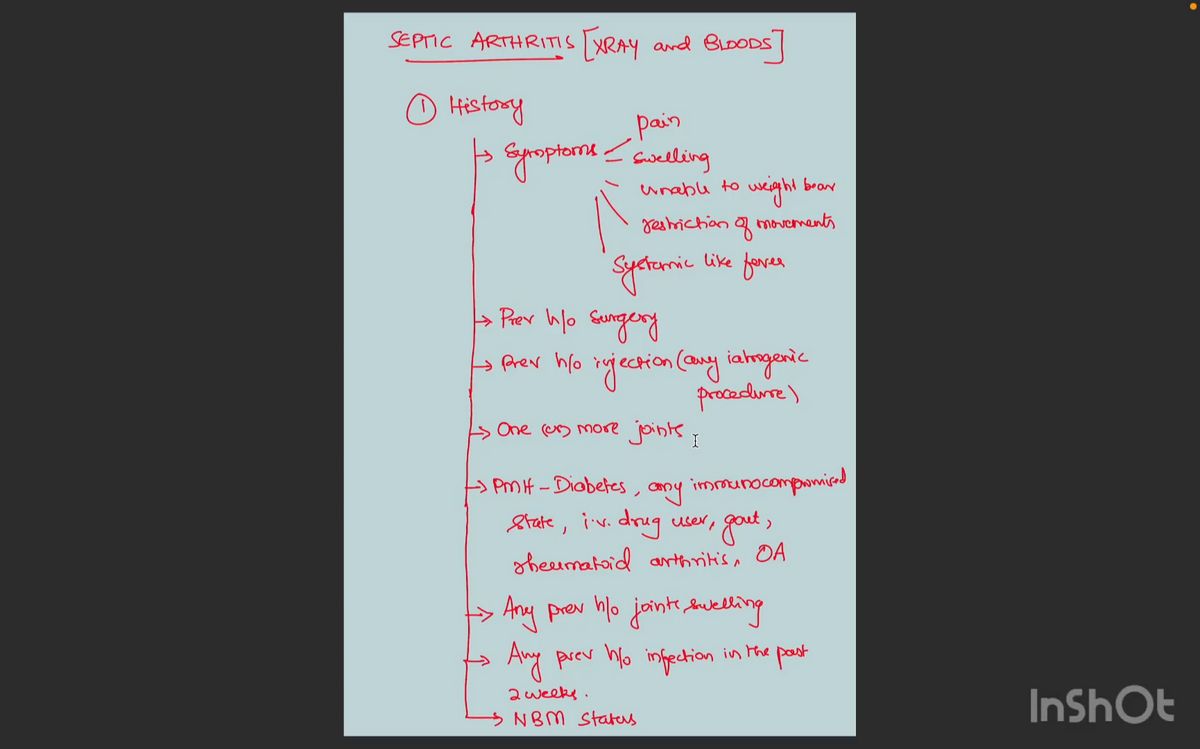 SEPTIC ARTHRITIS [XRAY and BLOODS]
① History
→ Symptoms
pain
swelling
unable to weight bear
restriction of movements
Systemic like fever
→ Prev h/o surgery
→ Prev h/o injection (any iatrogenic
procedure)
→ One (or) more joints
→ PMH - Diabetes, any immunocompromised
state, i.v. drug user, gout,
rheumatoid arthritis, OA
→ Any prev h/o joints swelling
→ Any prev h/o infection in the past
2 weeks.
→ NBM status
InShOt